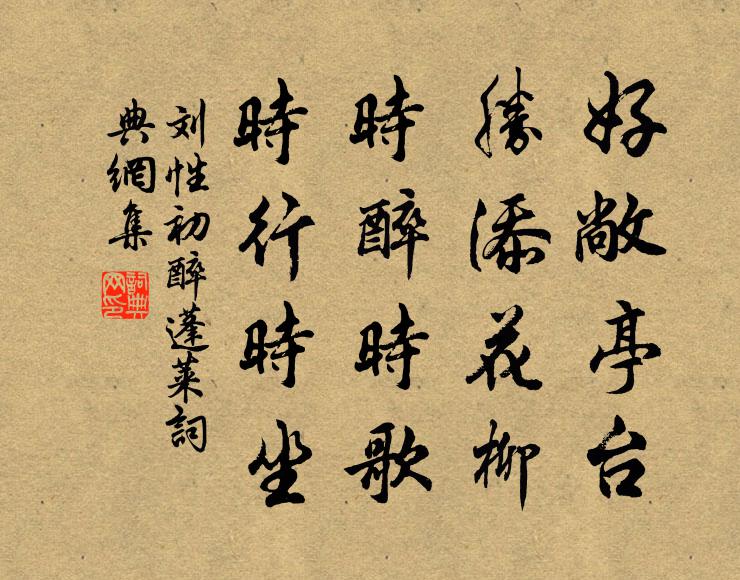 好敞亭台
勝添花柳
時醉時歌
時行時坐
刘性初醉蓬莱詞
典網集
詞典
网印